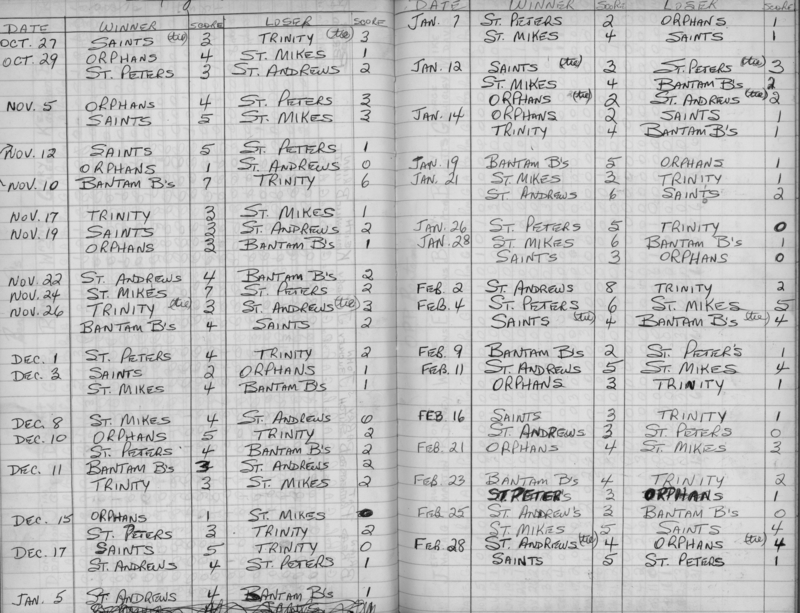 DATE WINNER SCORE LOSER SCORE
OCT. 27 SAINTS (tie) 3 TRINITY (tie) 3
OCT. 29 ORPHANS 4 ST. MIKES 1
ST. PETERS 3 ST. ANDREWS 2
NOV. 5 ORPHANS 4 ST. PETERS 3
SAINTS 5 ST. MIKES 3
NOV. 12 SAINTS 5 ST. PETERS 1
ORPHANS 1 ST. ANDREWS 0
NOV. 10 BANTAM B's 7 TRINITY 6
NOV. 17 TRINITY 3 ST. MIKES 1
NOV. 19 SAINTS 3 ST. ANDREWS 2
ORPHANS 3 BANTAM B's 1
NOV. 22 ST. ANDREWS 4 BANTAM B's 2
NOV. 24 ST MIKES 7 ST. PETERS 2
NOV. 26 TRINITY (tie) 3 ST. ANDREWS (tie) 3
BANTAM B's 4 SAINTS 2
DEC. 1 ST. PETERS 4 TRINITY 2
DEC. 3 SAINTS 2 ORPHANS 1
ST. MIKES 4 BANTAM B's 1
DEC. 8 ST. MIKES 4 ST. ANDREWS 0
DEC. 10 ORPHANS 5 TRINITY 2
ST. PETERS 4 BANTAM B's 2
DEC. 11 BANTAM B's 3 ST. ANDREWS 2
TRINITY 3 ST. MIKES 2
DEC. 15 ORPHANS 1 ST. MIKES 0
ST. PETERS 3 TRINITY 2
DEC. 17 SAINTS 5 TRINITY 0
ST. ANDREWS 4 ST. PETERS 1
JAN. 5 ST. ANDREWS 4 BANTAM B's 1
DATE WINNER SCORE LOSER SCORE
JAN. 7 ST. PETERS 2 ORPHANS 1
ST. MIKES 4 SAINTS 1
JAN. 12 SAINTS (tie) 3 ST. PETERS (tie) 3
ST. MIKES 4 BANTAM B's 2
ORPHANS (tie) 2 ST. ANDREWS (tie) 2
JAN. 14 ORPHANS 2 SAINTS 1
TRINITY 4 BANTAM B's 1
JAN. 19 BANTAM B's 5 ORPHANS 1
JAN. 21 ST. MIKES 3 TRINITY 1
ST ANDREWS 6 SAINTS 2
JAN. 26 ST. PETERS 5 TRINITY 0
JAN. 28 ST MIKES 6 BANTAM B's 1
SAINTS 3 ORPHANS 0
FEB. 2 ST. ANDREWS 8 TRINITY 2
FEB. 4 ST. PETERS 6 ST. MIKES 5
SAINTS (tie) 4 BANTAM B's (tie) 4
FEB. 9 BANTAM B's 2 ST. PETER'S 1
FEB. 11 ST. ANDREWS 5 ST. MIKES 4
ORPHANS 3 TRINITY 1
FEB. 16 SAINTS 3 TRINITY 1
ST. ANDREWS 3 ST. PETERS 0
FEB. 21 ORPHANS 4 ST. MIKES 3
FEB. 23 BANTAM B's 4 TRINITY 2
ST. PETER'S 3 ORPHANS 1
FEB. 25 ST. ANDREWS 3 BANTAM B's 0
ST. MIKES 5 SAINTS 4
FEB. 28 ST. ANDREWS (tie) 4 ORPHANS (tie) 4
SAINTS 5 ST. PETERS 1